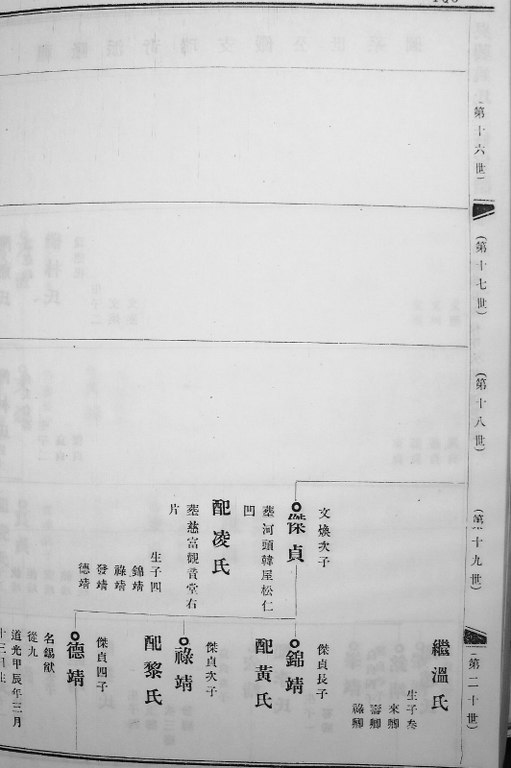 (第十六世)
(第十七世)
(第十八世)
(第十九世)
(第二十世)
文煥次子
傑貞
葬河頭韓屋松仁
凹
配凌氏
葬慈富觀音堂右
片
生子四
錦靖
祿靖
發靖
德靖
繼溫氏
生子叁
來卿
壽卿
祿卿
傑貞長子
錦靖
配黃氏
傑貞次子
祿靖
配黎氏
傑貞四子
德靖
名錫猷
從九
道光甲辰年三月